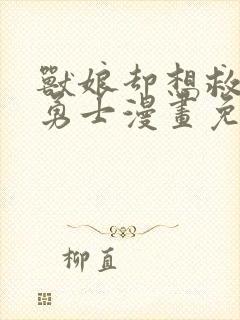 獸娘却想救
勇士漫畫免
柳直